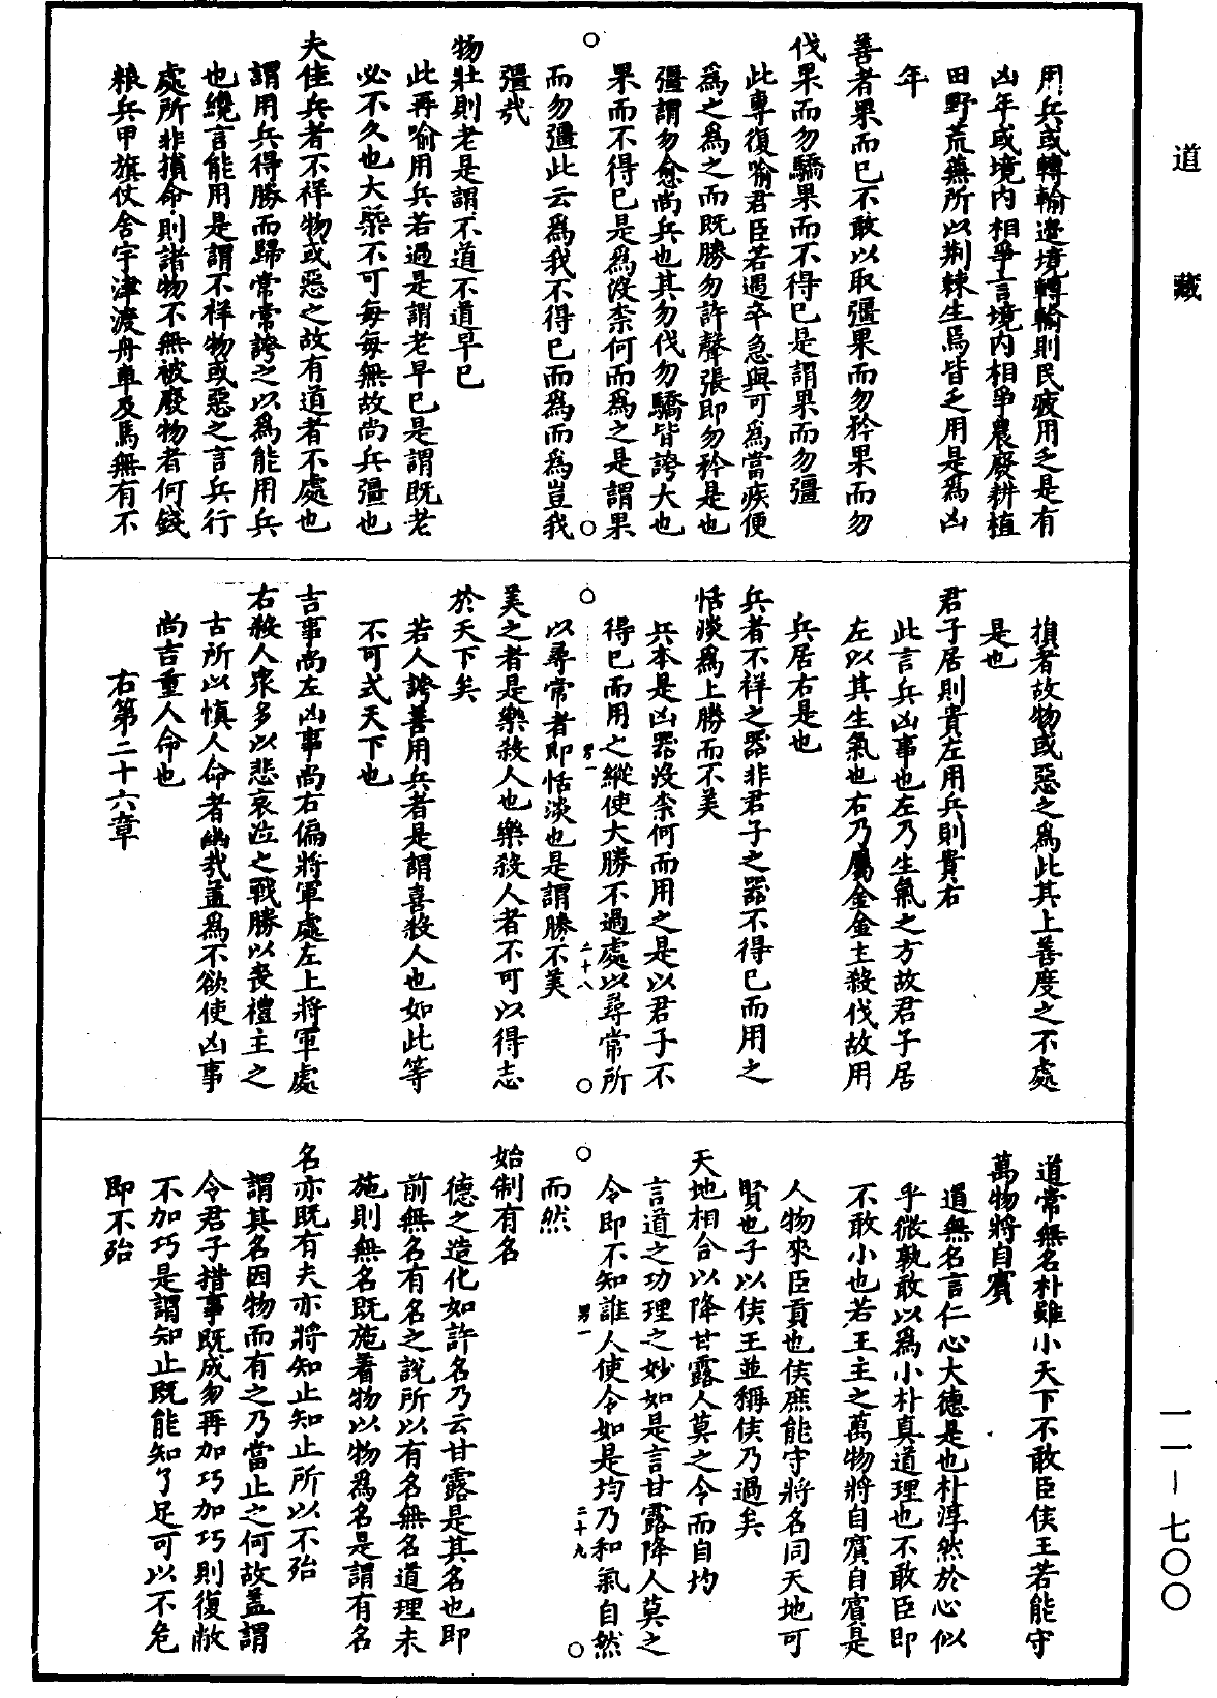 道藏
用兵或轉輸邊境轉輸則民疲用乏是有
凶年或境內相爭言境內相爭農廢耕植
田野荒蕪所以荆棘生焉皆乏用是爲凶
年
善者果而已不敢以取彊果而勿矜果而勿
伐果而勿驕果而不得已是謂果而勿彊
此專復喻君臣若遇卒急與可爲當疾便
爲之爲之而既勝勿許聲張即勿矜是也
彊謂勿愈尚兵也其勿伐勿驕皆誇大也
果而不得已是爲沒柰何而爲之是謂果
而勿彊此云爲我不得已而爲而爲豈我
彊哉
物壯則老是謂不道不道早已
此再喻用兵若過是謂老早已是謂既老
必不久也大槩不可每每無故尚兵彊也
夫佳兵者不祥物或惡之故有道者不處也
謂用兵得勝而歸常常誇之以爲能用兵
也纔言能用是謂不祥物或惡之言兵行
處所非損命則諸物不無被廢物者何錢
粮兵甲旗仗舍宇津渡舟車及馬無有不
損者故物或惡之爲此其上善度之不處
是也
君子居則貴左用兵則貴右
此言兵凶事也左乃生氣之方故君子居
左以其生氣也右乃屬金金主殺伐故用
兵居右是也
兵者不祥之器非君子之器不得已而用之
恬淡爲上勝而不美
兵本是凶器沒柰何而用之是以君子不
得已而用之縱使大勝不過處以尋常所
以尋常者即恬淡也是謂勝不美
男一
二十八
美之者是樂殺人也樂殺人者不可以得志
於天下矣
若人誇善用兵者是謂喜殺人也如此等
不可式天下也
吉事尚左凶事尚右偏將軍處左上將軍處
右殺人衆多以悲哀泣之戰勝以喪禮主之
古所以慎人命者幽哉蓋爲不欲使凶事
尚吉重人命也
右第二十六章
道常無名朴雖小天下不敢臣侯王若能守
萬物將自賓
道無名言仁心大德是也朴淳然於心似
乎微孰敢以爲小朴真道理也不敢臣即
不敢小也若王主之萬物將自賓自賓是
人物來臣貢也侯庶能守將名同天地可
賢也子以侯王並稱侯乃過矣
天地相合以降甘露人莫之令而自均
言道之功理之妙如是言甘露降人莫之
令即不知誰人使令如是均乃和氣自然
而然
男一
二十九
始制有名
德之造化如許名乃云甘露是其名也即
前無名有名之說所以有名無名道理未
施則無名既施着物以物爲名是謂有名
名亦既有夫亦將知止知止所以不殆
謂其名因物而有之乃當止之何故蓋謂
令君子措事既成勿再加巧加巧則復敝
不加巧是謂知止既能知了足可以不危
即不殆
一一－七〇〇